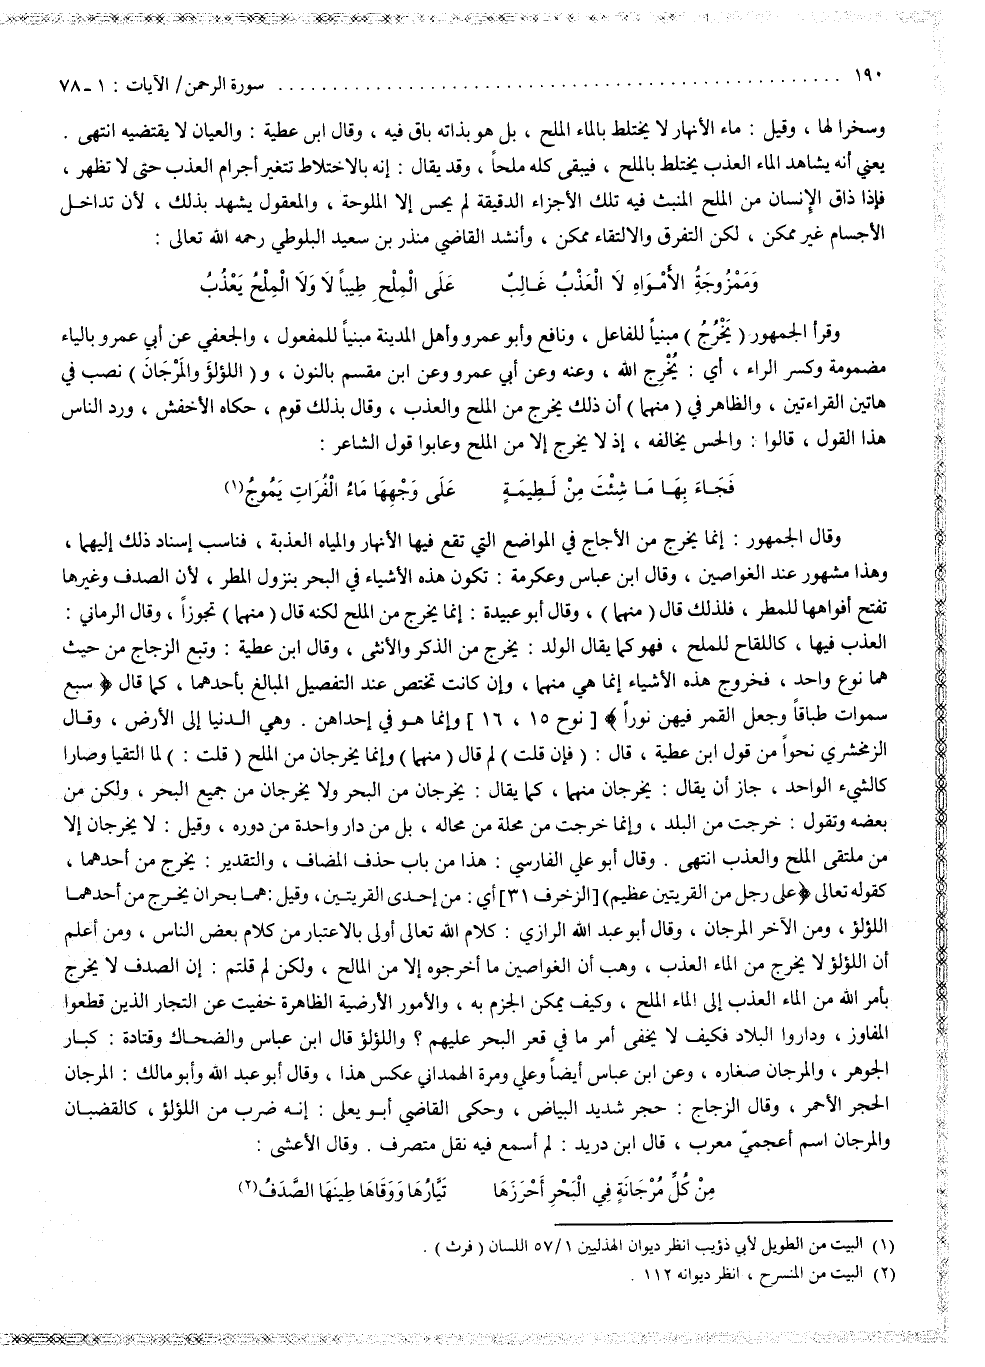 ١٩٠ ................................................ سورة الرحمن/ الآيات : ١ ـ ٧٨
وسخرا لها ، وقيل : ماء الأنهار لا يختلط بالماء الملح ، بل هو بذاته باق فيه ، وقال ابن عطية : والعيان لا يقتضيه انتهى .
يعني أنه يشاهد الماء العذب يختلط بالملح ، فيبقى كله ملحاً ، وقد يقال : إنه بالاختلاط تتغير أجرام العذب حتى لا تظهر ،
فإذا ذاق الإنسان من الملح المنبث فيه تلك الأجزاء الدقيقة لم يحس إلا الملوحة ، والمعقول يشهد بذلك ، لأن تداخل
الأجسام غير ممكن ، لكن التفرق والالتقاء ممكن ، وأنشد القاضي منذر بن سعيد البلوطي رحمه الله تعالى :
وَمَمْزُوجَةُ الأَمْوَاهِ لَا الْعَذْبُ غَالِبٌ عَلَى الْمِلْحِ طِيباً لَا وَلَا الْمِلْحُ يَعْذُبُ
وقرأ الجمهور ( يَخْرُجُ ) مبنياً للفاعل ، ونافع وأبو عمرو وأهل المدينة مبنياً للمفعول ، والجعفي عن أبي عمرو بالياء
مضمومة وكسر الراء ، أي : يُخْرِج الله ، وعنه وعن أبي عمرو وعن ابن مقسم بالنون ، و ( اللؤلؤَ والمَرْجَانَ ) نصب في
هاتين القراءتين ، والظاهر في ( منهما ) أن ذلك يخرج من الملح والعذب ، وقال بذلك قوم ، حكاه الأخفش ، ورد الناس
هذا القول ، قالوا : والحس يخالفه ، إذ لا يخرج إلا من الملح وعابوا قول الشاعر :
فَجَاءَ بِهَا مَا شِئْتَ مِنْ لَطِيمَةٍ عَلَى وَجْهِهَا مَاءُ الْفُرَاتِ يَمُوجُ(١)
وقال الجمهور : إنما يخرج من الأجاج في المواضع التي تقع فيها الأنهار والمياه العذبة ، فناسب إسناد ذلك إليهما ،
وهذا مشهور عند الغواصين ، وقال ابن عباس وعكرمة : تكون هذه الأشياء في البحر بنزول المطر ، لأن الصدف وغيرها
تفتح أفواهها للمطر ، فلذلك قال ( منهما ) ، وقال أبو عبيدة : إنما يخرج من الملح لكنه قال ( منهما ) تجوزاً ، وقال الرماني :
العذب فيها ، كاللقاح للملح ، فهو كما يقال الولد : يخرج من الذكر والأنثى ، وقال ابن عطية : وتبع الزجاج من حيث
هما نوع واحد ، فخروج هذه الأشياء إنما هي منهما ، وإن كانت تختص عند التفصيل المبالغ بأحدهما ، كما قال ﴿ سبع
سموات طباقاً وجعل القمر فيهن نوراً ﴾ [ نوح ١٥ ، ١٦ ] وإنما هو في إحداهن . وهي الدنيا إلى الأرض ، وقال
الزمخشري نحواً من قول ابن عطية ، قال : ( فإن قلت ) لم قال ( منهما ) وإنما يخرجان من الملح ( قلت : ) لما التقيا وصارا
كالشيء الواحد ، جاز أن يقال : يخرجان منهما ، كما يقال : يخرجان من البحر ولا يخرجان من جميع البحر ، ولكن من
بعضه وتقول : خرجت من البلد ، وإنما خرجت من محلة من محاله ، بل من دار واحدة من دوره ، وقيل : لا يخرجان إلا
من ملتقى الملح والعذب انتهى . وقال أبو علي الفارسي : هذا من باب حذف المضاف ، والتقدير : يخرج من أحدهما ،
كقوله تعالى ﴿على رجل من القريتين عظيم)[الزخرف ٣١] أي : من إحدى القريتين ، وقيل :هما بحران يخرج من أحدهما
اللؤلؤ ، ومن الآخر المرجان ، وقال أبو عبد الله الرازي : كلام الله تعالى أولى بالاعتبار من كلام بعض الناس ، ومن أعلم
أن اللؤلؤ لا يخرج من الماء العذب ، وهب أن الغواصين ما أخرجوه إلا من المالح ، ولكن لم قلتم : إن الصدف لا يخرج
بأمر الله من الماء العذب إلى الماء الملح ، وكيف يمكن الجزم به ، والأمور الأرضية الظاهرة خفيت عن التجار الذين قطعوا
المفاوز ، وداروا البلاد فكيف لا يخفى أمر ما في قعر البحر عليهم ؟ واللؤلؤ قال ابن عباس والضحاك وقتادة : كبار
الجوهر ، والمرجان صغاره ، وعن ابن عباس أيضاً وعلي ومرة الهمداني عكس هذا ، وقال أبو عبد الله وأبو مالك : المرجان
الحجر الأحمر ، وقال الزجاج : حجر شديد البياض ، وحكى القاضي أبو يعلى : إنه ضرب من اللؤلؤ ، كالقضبان
والمرجان اسم أعجميّ معرب ، قال ابن دريد : لم أسمع فيه نقل متصرف . وقال الأعشى :
مِنْ كُلِّ مُرْجَانَةٍ فِي الْبَحْرِ أَحْرَزَهَا تَيَّارُهَا وَوَقَاهَا طِينَهَا الصَّدَفُ(٢)
(١) البيت من الطويل لأبي ذؤيب انظر ديوان الهذليين ٥٧/١ اللسان ( فرث ) .
(٢) البيت من المنسرح ، انظر ديوانه ١١٢ .